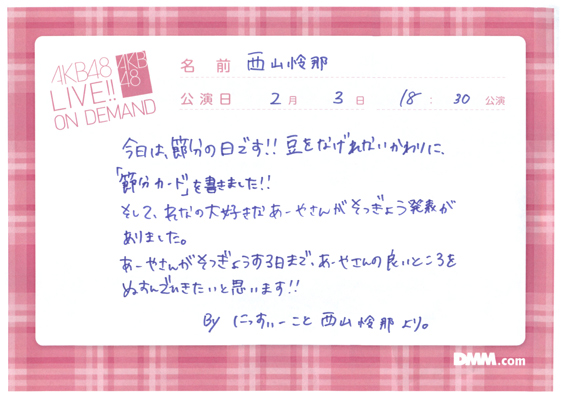 AKB48
LIVE!!
ON DEMAND
AKB
48
名前 西山怜那
公演日 2月 3日 18:30 公演
今日は、節分の日です!! 豆をなげれないかわりに、
「節分カード」を書きました!!
そして、れなの大好きなあーやさんがそつぎょう発表が
ありました。
あーやさんがそつぎょうする日まで、あーやさんの良いところを
ぬすんでいきたいと思います!!
By にっすぃーこと 西山怜那 より。
DMM.com